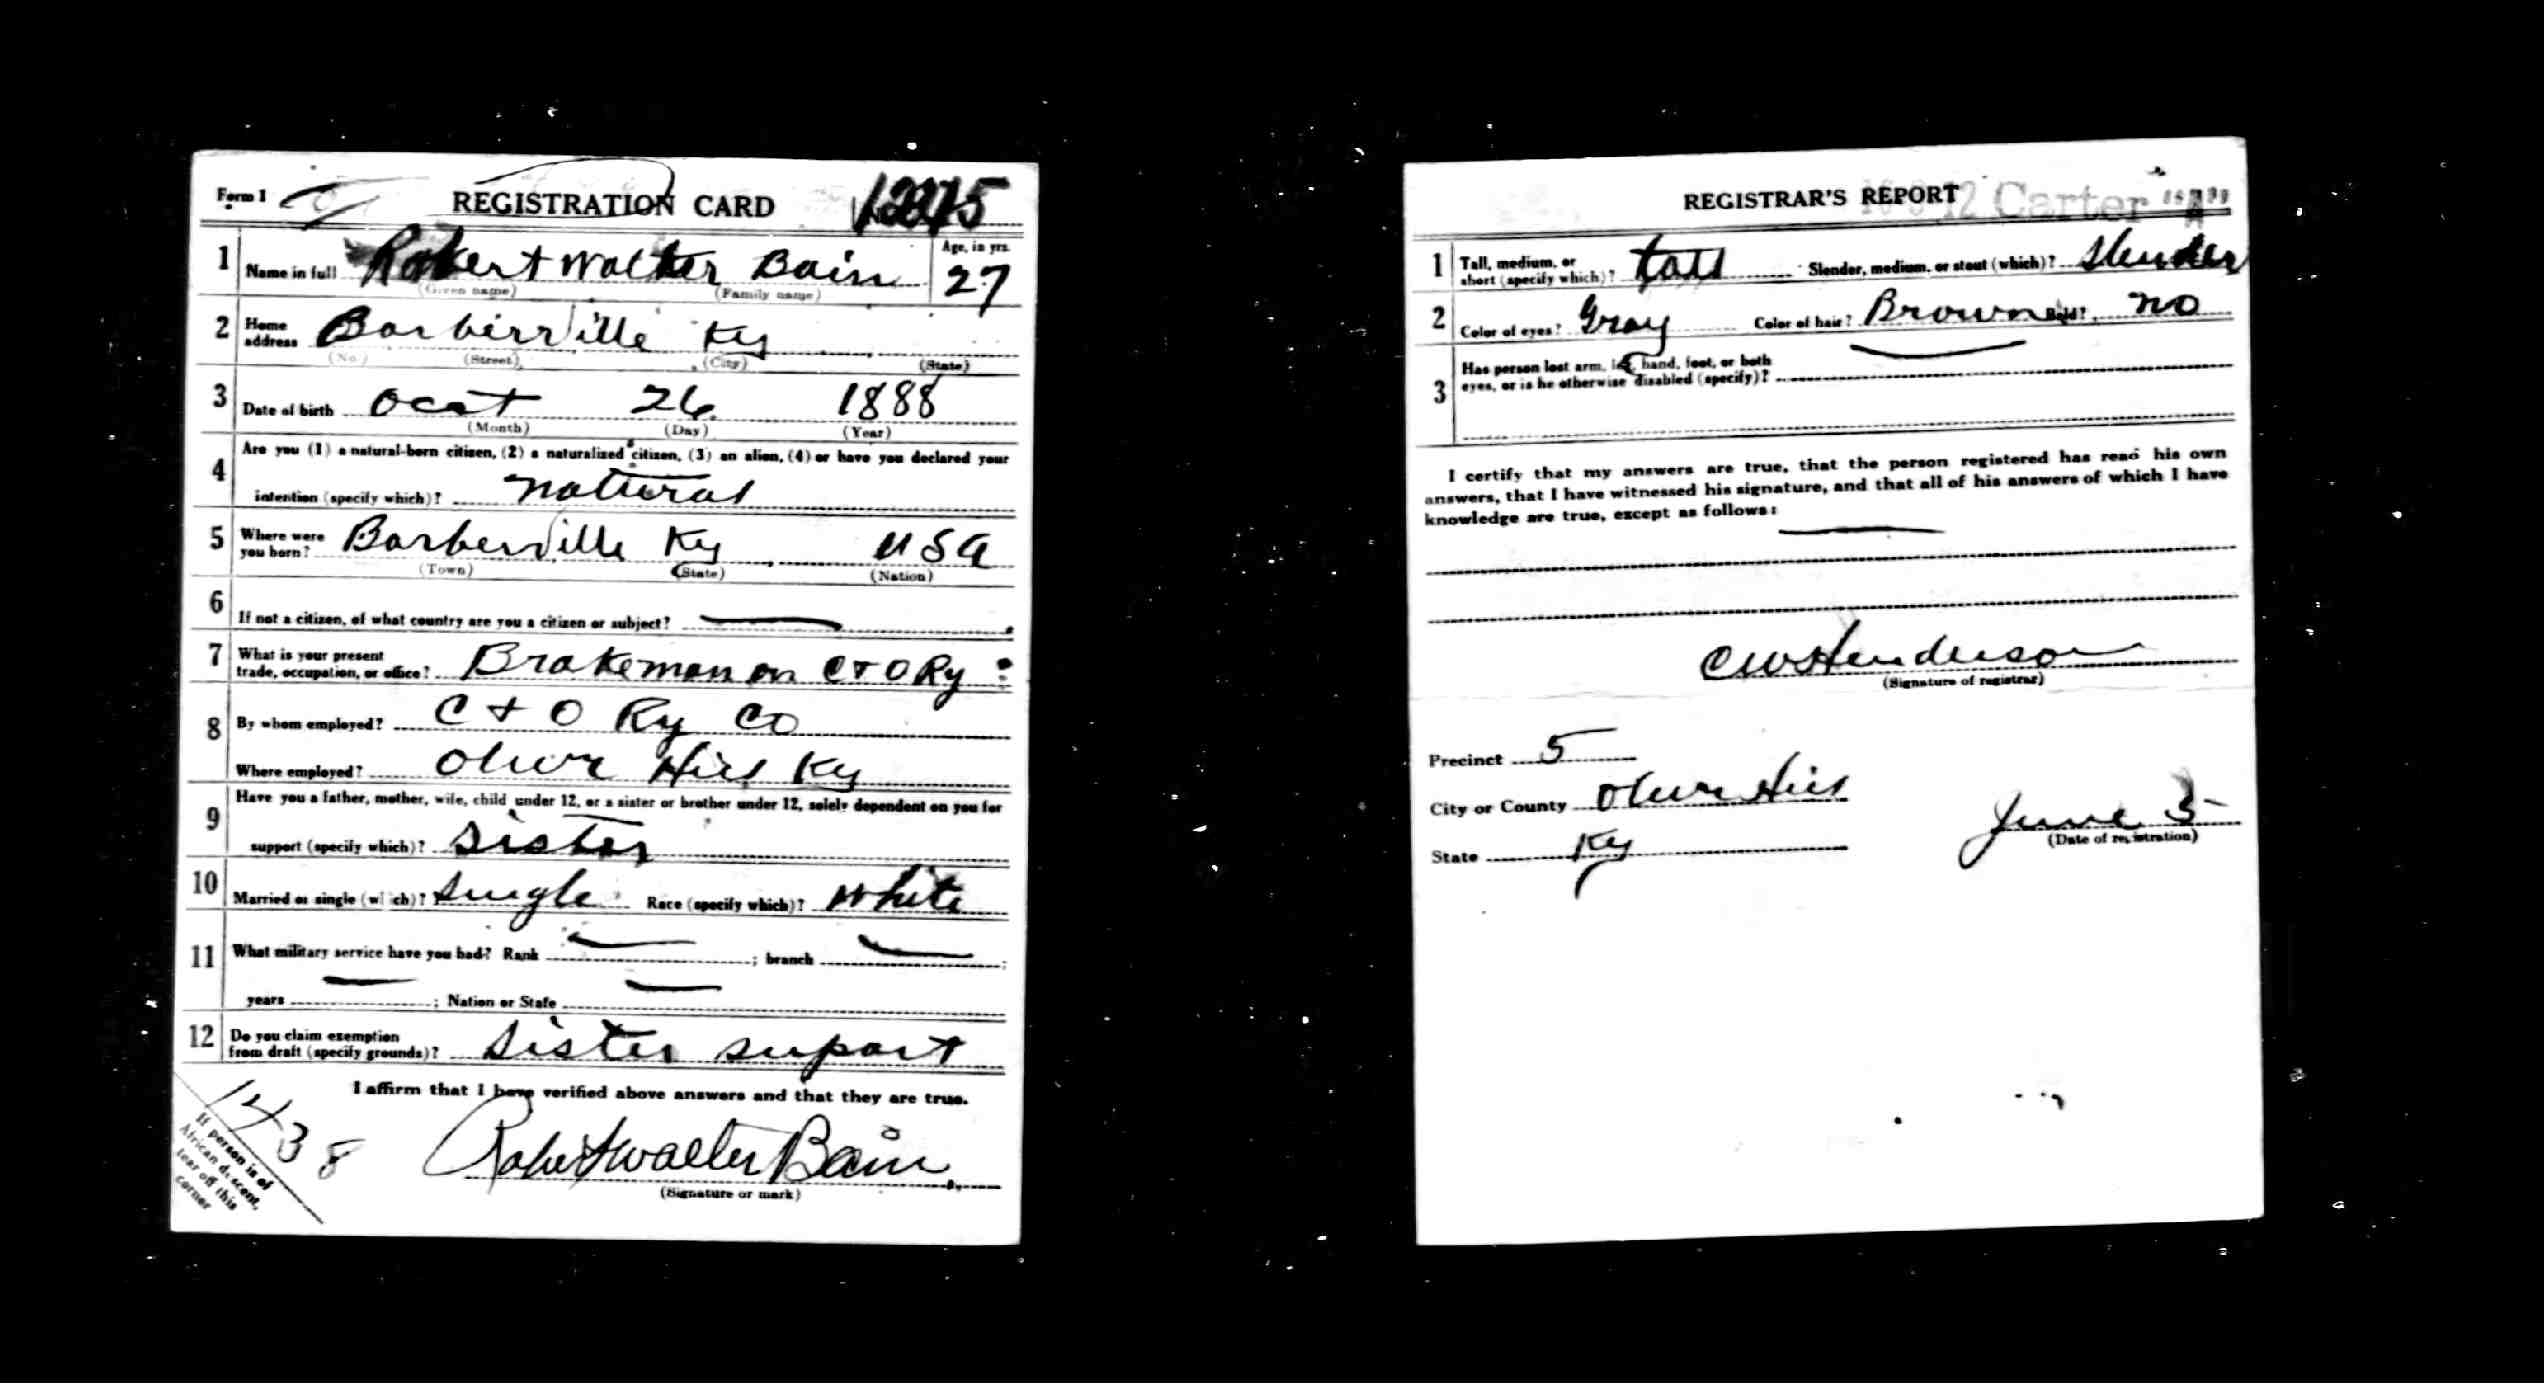 Form 1
REGISTRATION CARD
1 Name in full Robert Walter Bain Age, in yrs. 27
(Given name) (Family name)
2 Home address Barberville Ky
(No.) (Street) (City) (State)
3 Date of birth Ocat 26 1888
(Month) (Day) (Year)
4 Are you (1) a natural-born citizen, (2) a naturalized citizen, (3) an alien, (4) or have you declared your
intention (specify which)? natural
5 Where were you born? Barberville Ky USA
(Town) (State) (Nation)
6 If not a citizen, of what country are you a citizen or subject?
7 What is your present
trade, occupation, or office? Brakeman on C & O Ry
8 By whom employed? C & O Ry Co
Where employed? Olive Hill Ky
9 Have you a father, mother, wife, child under 12, or a sister or brother under 12, solely dependent on you for
support (specify which)? Sister
10 Married or single (which)? Single Race (specify which)? White
11 What military service have you had? Rank ; branch ;
years ; Nation or State
12 Do you claim exemption
from draft (specify grounds)? Sister suport
I affirm that I have verified above answers and that they are true.
1438
Robert Walter Bain
(Signature or mark)
If person is of
African descent,
tear off this
corner
REGISTRAR'S REPORT
Carter
1 Tall, medium, or
short (specify which)? tall Slender, medium, or stout (which)? Slender
2 Color of eyes? Gray Color of hair? Brown Bald? no
3 Has person lost arm, leg, hand, foot, or both
eyes, or is he otherwise disabled (specify)?
I certify that my answers are true, that the person registered has read his own
answers, that I have witnessed his signature, and that all of his answers of which I have
knowledge are true, except as follows:
CW Henderson
(Signature of registrar)
Precinct 5
City or County Olive Hill
State Ky
June 5
(Date of registration)